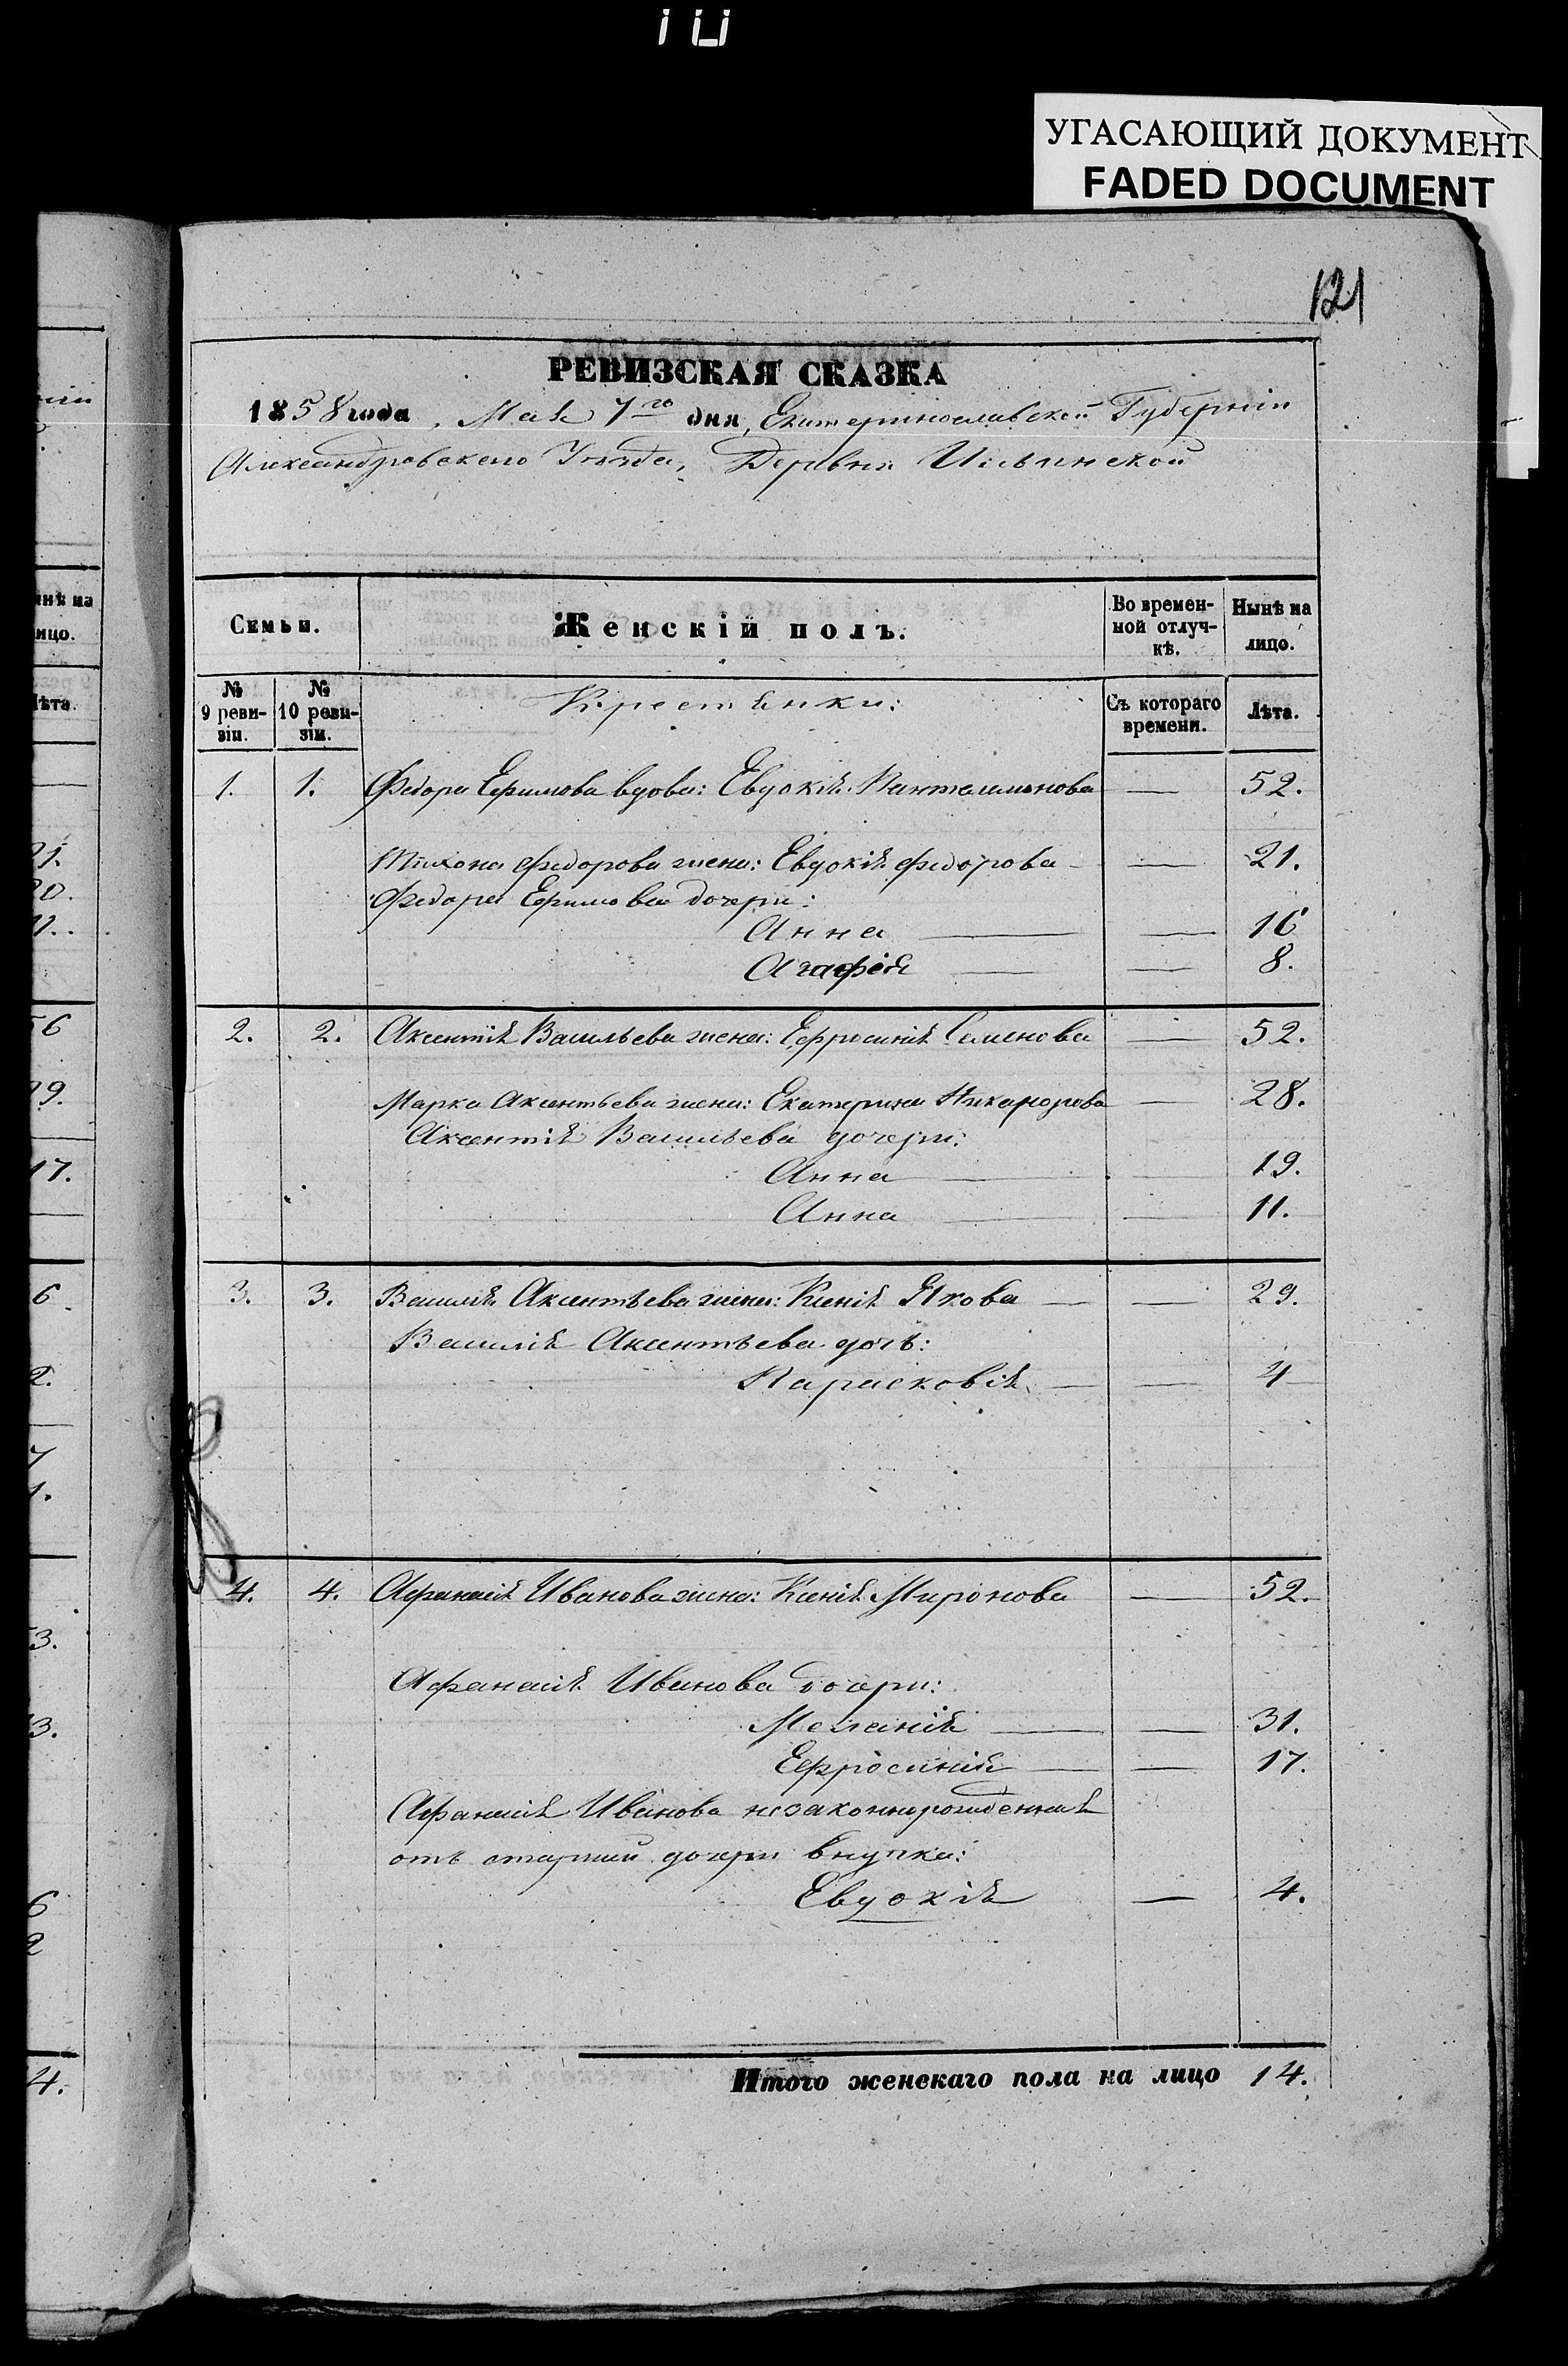 УГАСАЮЩИЙ ДОКУМЕНТ
FADED DOCUMENT
121
РЕВИЗСКАЯ СКАЗКА
1858 года, Мая 7го дня, Екатеринославской Губернии
Александровского Уезда, Деревни Ильинской
Семьи.
Женскій полъ.
Во времен-
ной отлуч-
кѣ.
Нынѣ на
лицо.
№
9 реви-
зіи.
№
10 реви-
зіи.
Крестьянки:
Съ котораго
времени.
Лѣта.
1. 1. Федора Ефимова вдова: Евдокія Пантелимонова — 52.
Тихона Федорова жена: Евдокія Федорова — 21.
Федора Ефимова дочери:
Анна — 16
Агафія — 8.
2. 2. Аксентія Васильева жена: Ефросинія Семенова — 52.
Марка Аксентьева жена: Екатерина Никанорова — 28.
Аксентія Васильева дочери:
Анна — 19.
Анна — 11.
3. 3. Василія Аксентьева жена: Ксенія Якова — 29.
Василія Аксентьева дочь:
Парасковія — 4
4. 4. Афанасія Иванова жена: Ксенія Миронова — 52.
Афанасія Иванова дочери:
Меланія — 31.
Ефросинія — 17.
Афанасія Иванова незаконнорожденная
отъ старшей дочери внучка:
Евдокія — 4.
Итого женскаго пола на лицо 14.